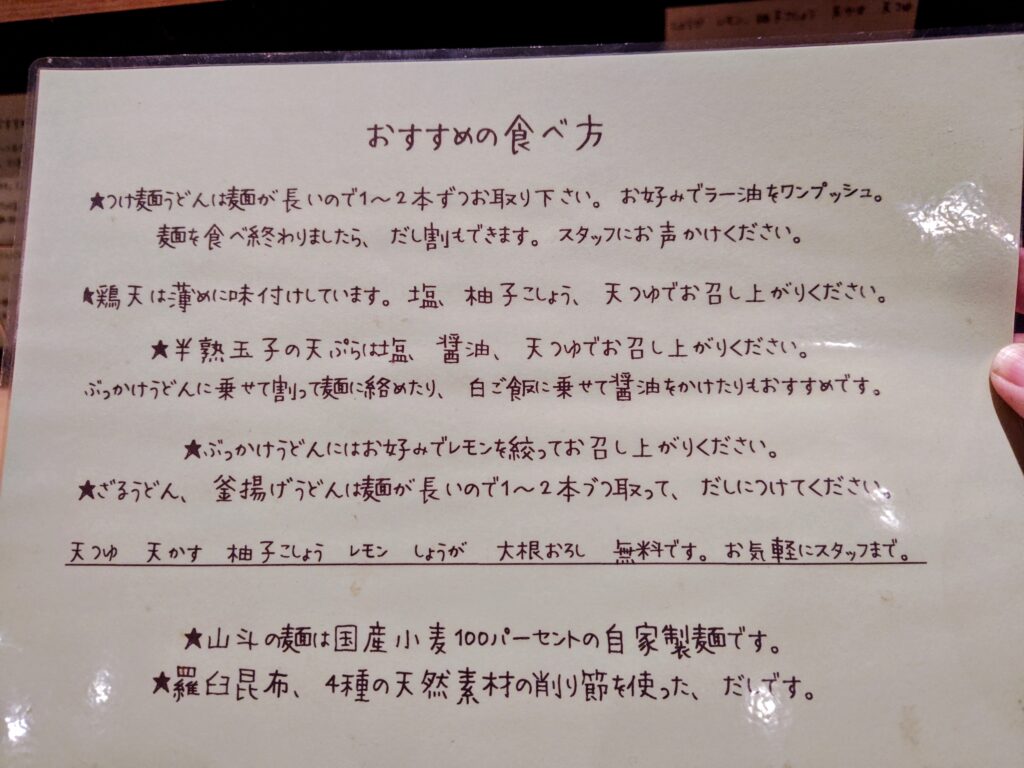 おすすめの食べ方
★つけ麺うどんは麺が長いので1〜2本ずつお取り下さい。お好みでラー油をワンプッシュ。
麺を食べ終わりましたら、だし割もできます。スタッフにお声かけください。
★鶏天は薄めに味付けしています。塩、柚子こしょう、天つゆでお召し上がりください。
★半熟玉子の天ぷらは塩、醤油、天つゆでお召し上がりください。
ぶっかけうどんに乗せて割って麺に絡めたり、白ご飯に乗せて醤油をかけたりもおすすめです。
★ぶっかけうどんにはお好みでレモンを絞ってお召し上がりください。
★ざるうどん、釜揚げうどんは麺が長いので1〜2本づつ取って、だしにつけてください。
天つゆ 天かす 柚子こしょう レモン しょうが 大根おろし 無料です。お気軽にスタッフまで。
★山斗の麺は国産小麦100パーセントの自家製麺です。
★羅臼昆布、4種の天然素材の削り節を使った、だしです。